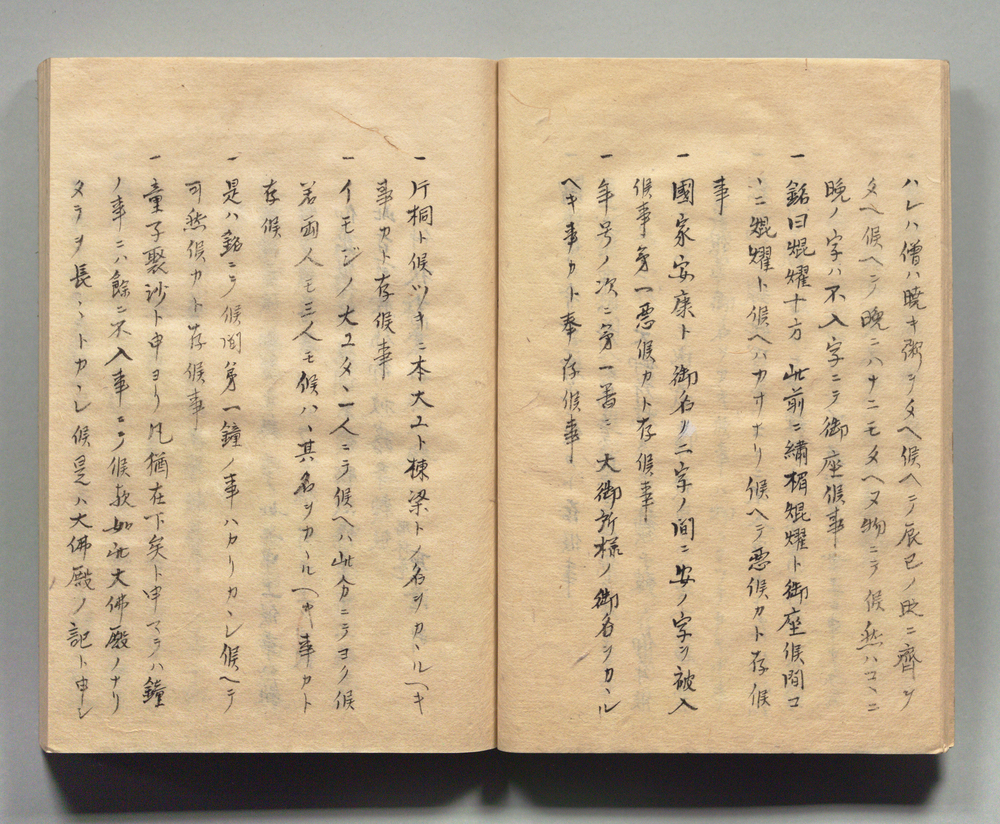 ハレハ僧ハ暁キ粥ヲタヘ候ヘテ辰巳ノ時ニ齊ヲ
タヘ候ヘテ晩ニハナニモタヘヌ物ニテ候然ハコヽニ
晩ノ字ハ不入字ニテ御座候事
一 銘曰焜燿十方 此前ニ繡楣焜燿ト御座候間コ
ヽニ焜燿ト候ヘハカサナリ候ヘテ悪候カト存候
事
一 國家安康ト御名ノ二字ノ間ニ安ノ字ヲ被入
候事第一悪候カト存候事
一 年号ノ次ニ第一番ニ大御所様ノ御名ヲカヽル
ヘキ事カト奉存候事
一 片桐ト候ツキニ本大工ト棟梁トノ名ヲカヽルヘキ
事カト存候事
一 イモジノ大工タヽ一人ニテ候ヘハ此分ニテヨク候
若両人モ三人モ候ハヽ其名ヲカヽルヘキ事カト
存候
一 是ハ銘ニテ候間第一鐘ノ事ハカリカヽレ候ヘテ
可然候カト存候事
一 童子聚沙ト申ヨリ凡猶在下矣ト申マテハ鐘
ノ事ニハ餘ニ不入事ニテ候歟如此大佛殿ノナリ
タチヲ長〻トカヽレ候是ハ大佛殿ノ記ト申シ